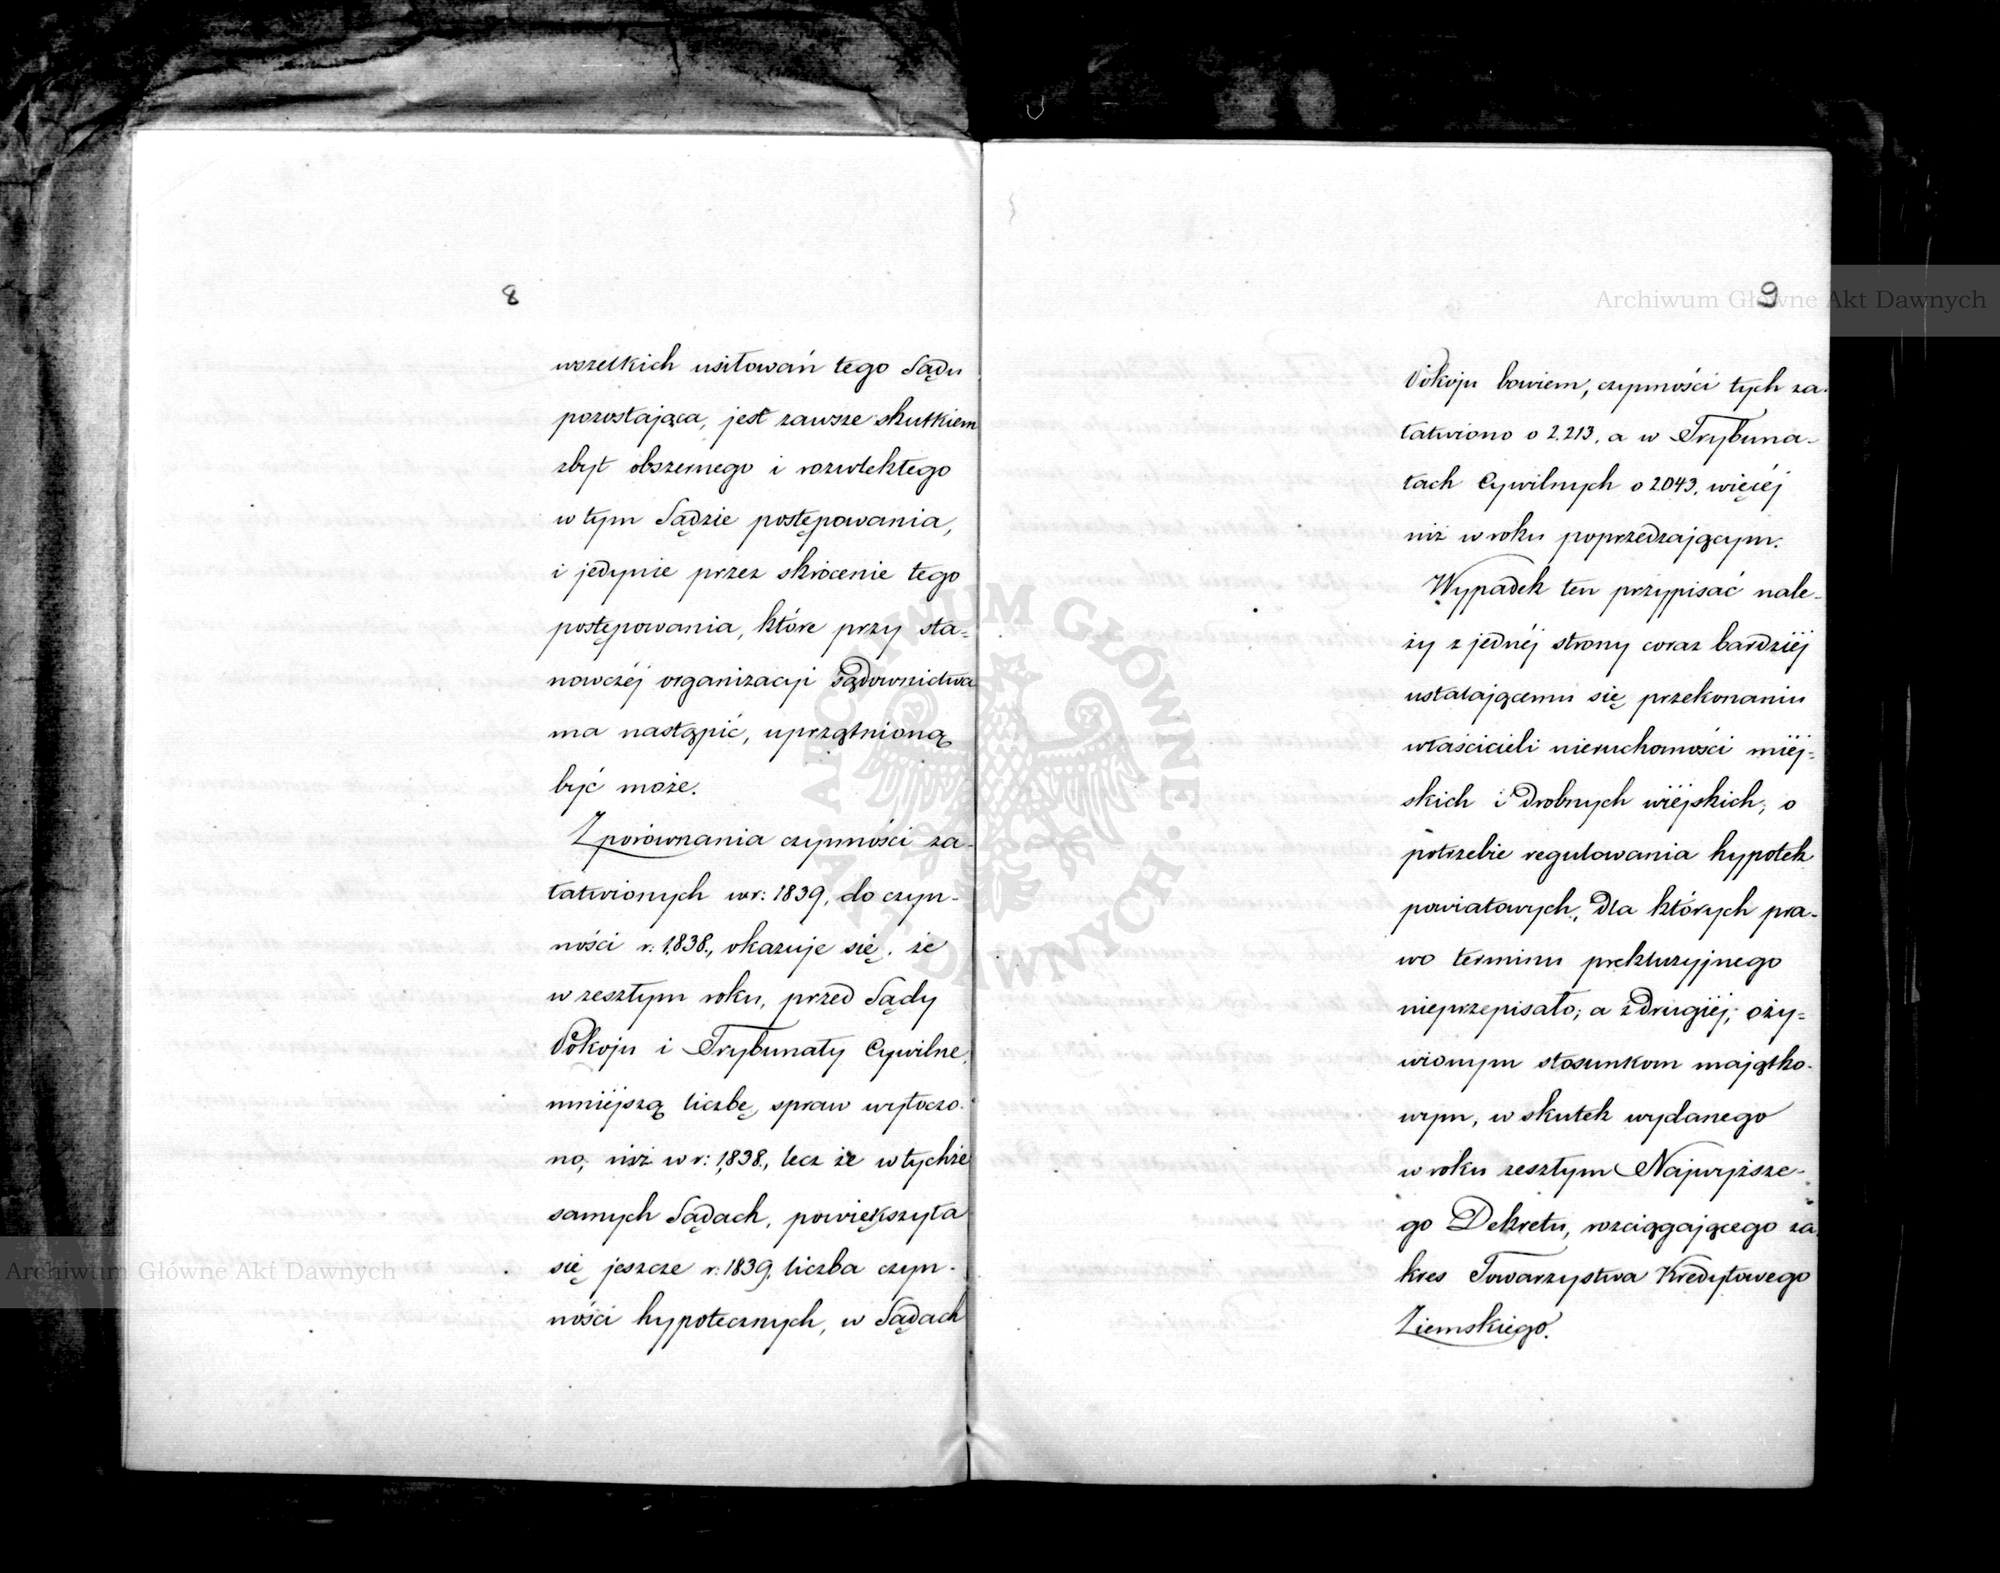 8
wszelkich usiłowań tego Sądu
pozostająca, jest zawsze skutkiem
zbyt obszernego i rozwlekłego
w tym Sądzie postępowania,
i jedynie przez skrócenie tego
postępowania, które przy sta-
nowczéj organizacyi Sądownictwa
ma nastąpić, uprzątnioną
być może.
Z porównania czynności za-
łatwionych w r: 1839, do czyn-
ności r. 1838., okazuje się, że
w zeszłym roku, przed Sądy
Pokoju i Trybunały Cywilne,
mniéjszą liczbę spraw wytoczo-
no, niż w r: 1838., lecz że w tychże
samych Sądach, powiększyła
się jeszcze r. 1839, liczba czyn-
ności hypotecznych, w Sądach
9
Pokoju bowiem, czynności tych za-
łatwiono o 2.213, a w Trybuna-
łach Cywilnych o 2043, więcéj
niż w roku poprzedzającym.
Wypadek ten przypisać nale-
ży z jednéj strony coraz bardziéj
ustalającemu się przekonaniu
właścicieli nieruchomości miéj-
skich i drobnych wiéjskich, o
potrzebie regulowania hypotek
powiatowych, dla których pra-
wo terminu prekluzyjnego
nieprzepisało; a z drugiéj, oży-
wionym stosunkom majątko-
wym, w skutek wydanego
w roku zeszłym Najwyższe-
go Dekretu, rozciągającego za-
kres Towarzystwa Kredytowego
Ziemskiego.
Archiwum Główne Akt Dawnych
Archiwum Główne Akt Dawnych
ARCHIWUM GŁÓWNE AKT DAWNYCH